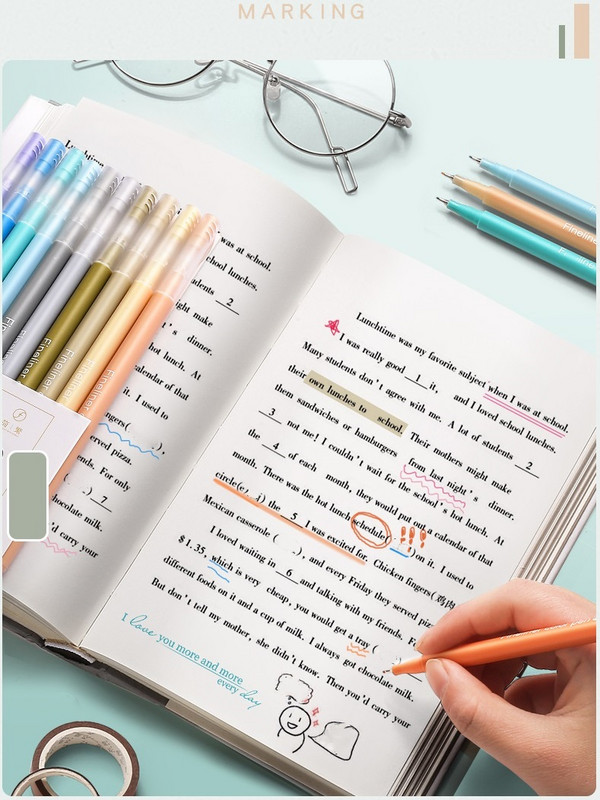 MARKING
Lunchtime
was at school.
hool lunches.
udents 2
ght make
's dinner.
hot lunch. At
calendar of that
it. I used to
ngers( ),
erved pizza.
ends. For only
( ) 7
hocolate milk.
'd carry your
Fineliner
Fineliner
Fineliner
Fineliner
Lunchtime was my favorite subject when I was at school.
I was really good 1 it, and I loved school lunches.
Many students don't agree with me. A lot of students 2
their own lunches to school. Their mothers might make
them sandwiches or hamburgers from last night's dinner.
3 not me! I couldn't wait for the school's hot lunch. At
the 4 of each month, they would put out a calendar of that
month. There was the hot lunch schedule( !!! ) on it. I used to
circle( ) the 5 I was excited for. Chicken fingers(
Mexican casserole ( ), and every Friday they served pizz
I loved waiting in 6 and talking with my friends. F
$1.35, which is very cheap, you would get a tray (
different foods on it and a cup of milk. I always got chocolate milk.
But don't tell my mother, she didn't know. Then you'd carry your
I love you more and more
every day